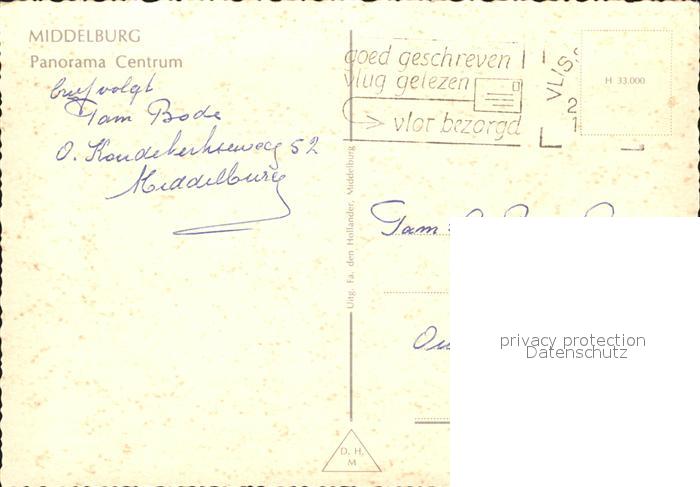 MIDDELBURG
Panorama Centrum
brief volgt
Fam Bode
O. Koudekerkseweg 52
Middelburg
goed geschreven
vlug gelezen
vlot bezorgd
VLISS
2
1
H 33.000
Uitg. Fa. den Hollander, Middelburg
Fam
privacy protection
Datenschutz
D. H.
M